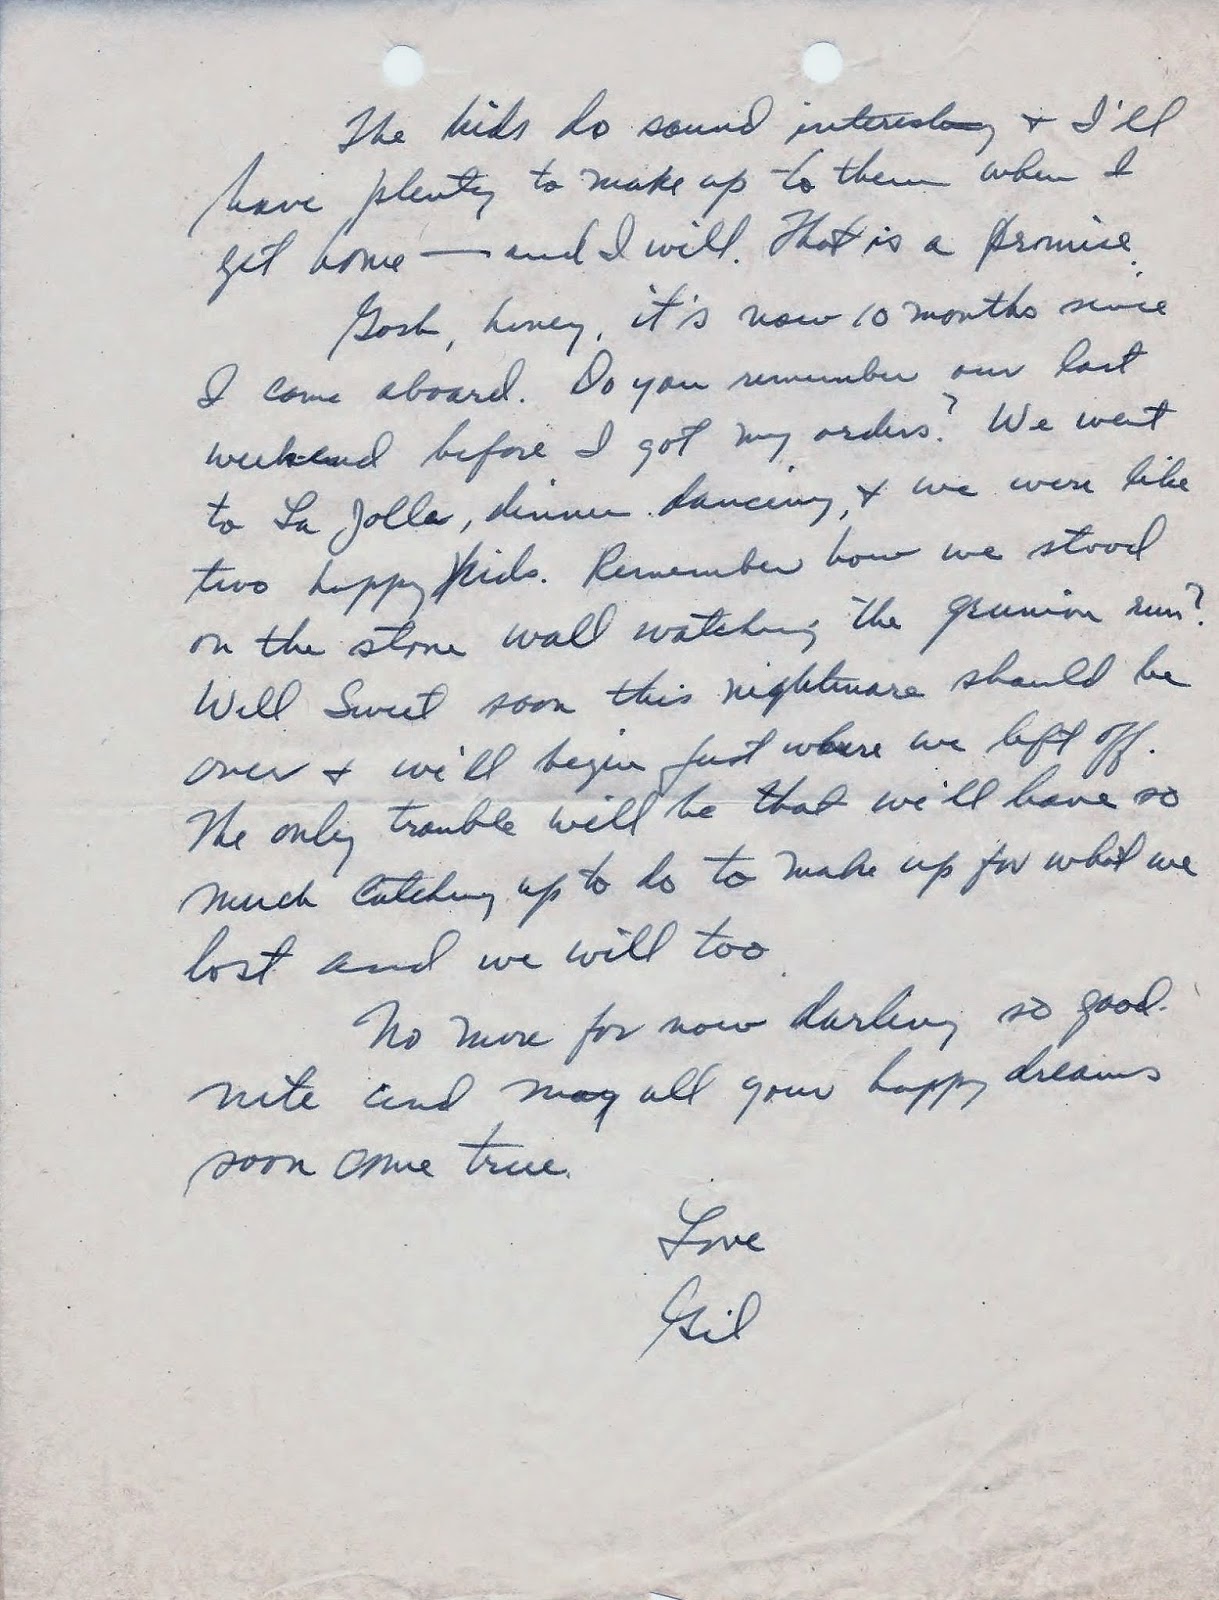 The kids do sound interesting & I'll
have plenty to make up to them when I
get home — and I will. That is a promise.
Gosh, honey, it's now 10 months since
I came aboard. Do you remember our last
weekend before I got my orders? We went
to La Jolla, dinner dancing, & we were like
two happy kids. Remember how we stood
on the stone wall watching the grunion run?
Well Sweet soon this nightmare should be
over & we'll begin just where we left off.
The only trouble will be that we'll have so
much catching up to do to make up for what we
lost and we will too.
No more for now darling so good-
nite and may all your happy dreams
soon come true.
Love
Gil